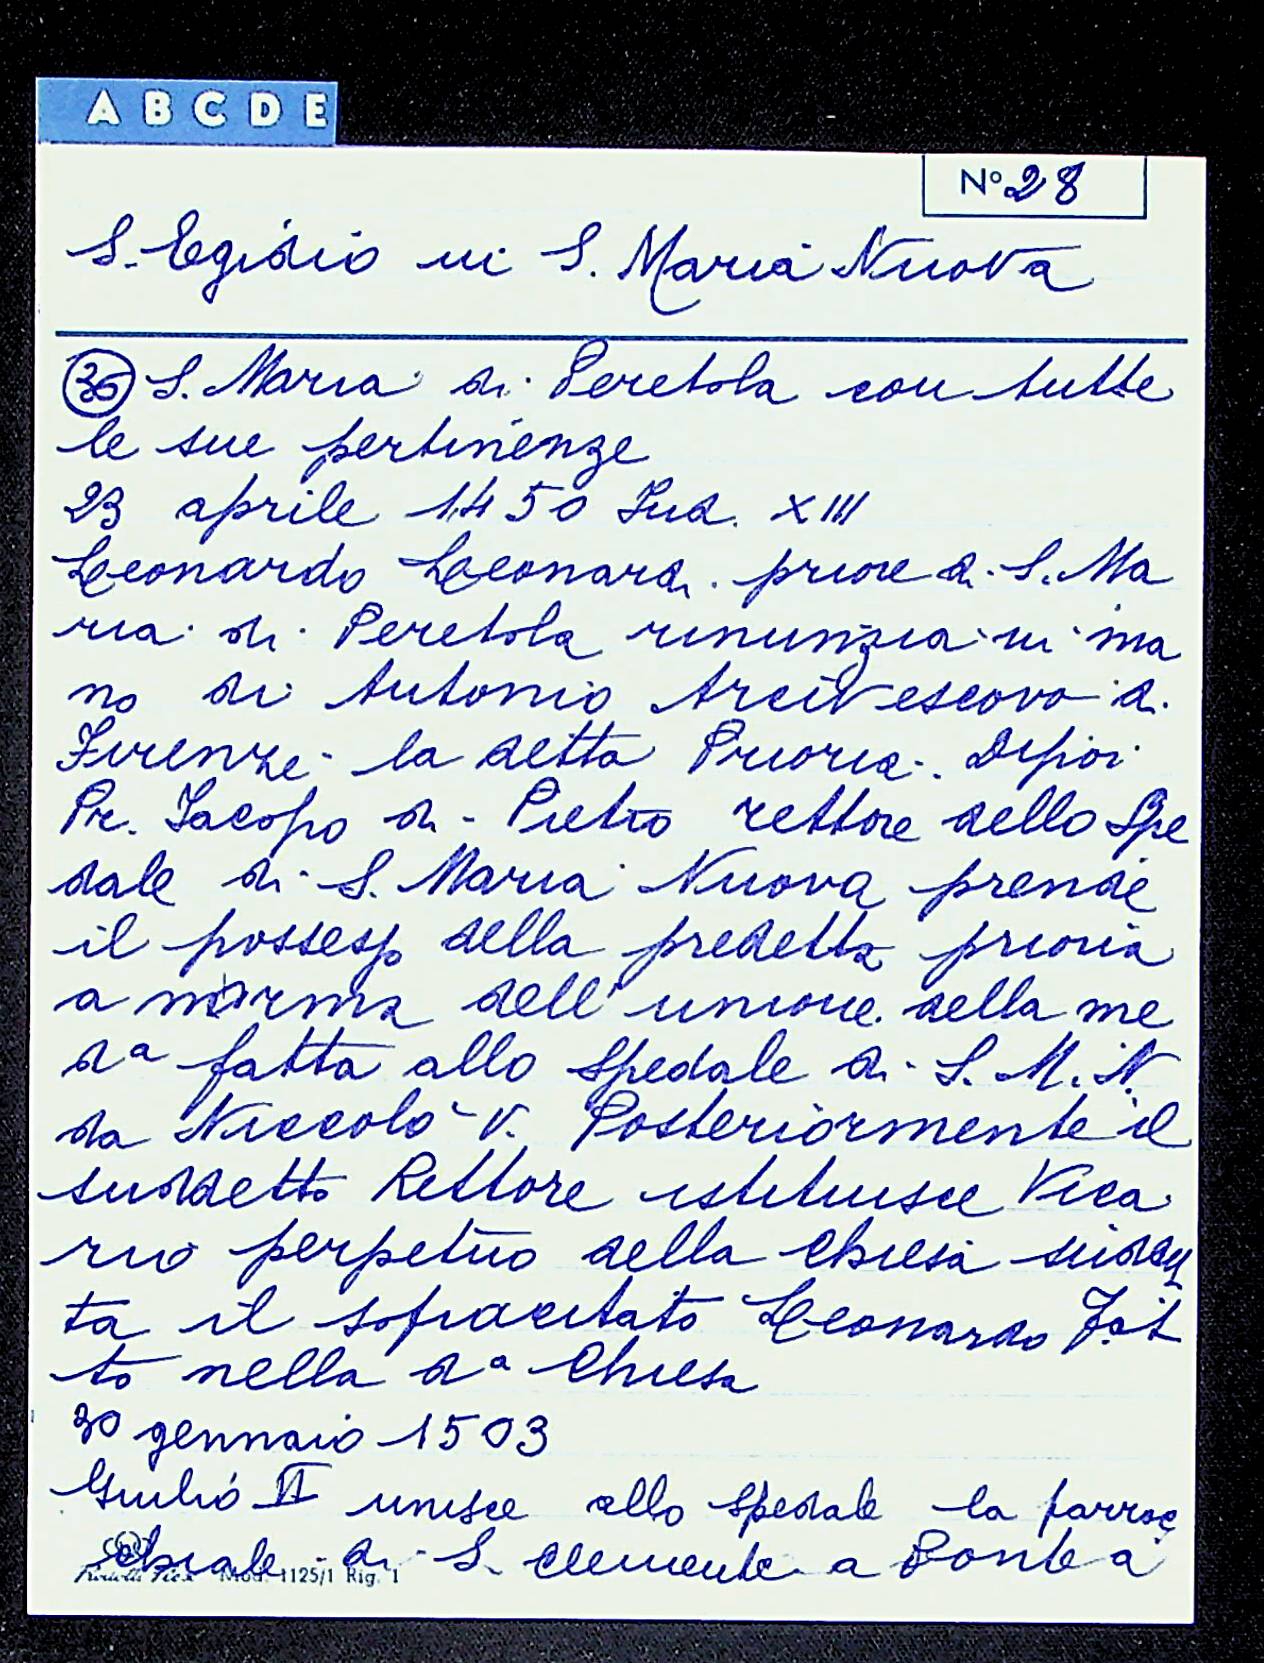 A B C D E
Nº 28
S. Egidio in S. Maria Nuova
36 S. Maria di Peretola con tutte
le sue pertinenze
23 aprile 1450 Ind. XIII
Leonardo Leonardi priore di S. Ma
ria di Peretola rinunzia in ma
no di Antonio Arcivescovo di
Firenze la detta Prioria. Dipoi
Pr. Jacopo di Pietro rettore dello Spe
dale di S. Maria Nuova prende
il possesso della predetta prioria
a norma dell'unione della me
dª fatta allo Spedale di S. M. N.
da Niccolò V. Posteriormente il
suddetto Rettore istituisce Vica
rio perpetuo della Chiesa suddet
ta il sopracitato Leonardo
to nella dª Chiesa
30 gennaio 1503
Giulio II unisce allo Spedale la parroc
chiale di S. Clemente a Ponte a
Mod. 1125/1 Rig. 1